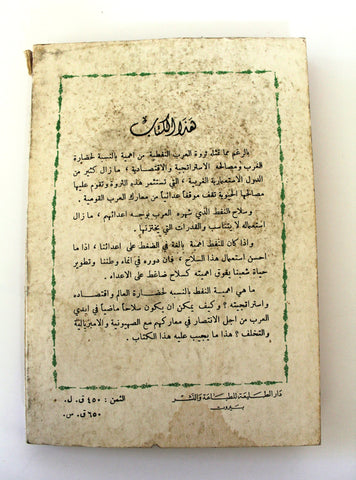 هذا الكتاب
بالرغم مما تمثله ثروة العرب النفطية من اهمية بالنسبة لحضارة
الغرب ومصالحه الاستراتيجية والاقتصادية ، ما زال كثير من
الدول الاستعمارية الغربية ، التي تستثمر هذه الثروة وتقوم عليها
مصالحها الحيوية تقف موقفاً عدائياً من معارك العرب القومية .
وسلاح النفط الذي شهره العرب بوجه اعدائهم ، ما زال
استعماله لا يتناسب والقدرات التي يختزنها .
واذا كان للنفط اهمية بالغة في الضغط على اعدائنا ، اذا ما
احسن استعمال هذا السلاح ، فان دوره في انماء وطننا وتطوير
حياة شعبنا يفوق اهميته كسلاح ضاغط على الاعداء .
ما هي اهمية النفط بالنسبة لحضارة العالم واقتصاده
واستراتيجيته ؟ وكيف يمكن ان يكون سلاحاً ماضياً في ايدي
العرب من اجل الانتصار في معاركهم مع الصهيونية والامبريالية
والتخلف ؟ هذا ما يجيب عليه هذا الكتاب .
دار الطليعة للطباعة والنشر
بيروت
الثمن : ٤٥٠ ق. ل.
٦٥٠ ق. س.